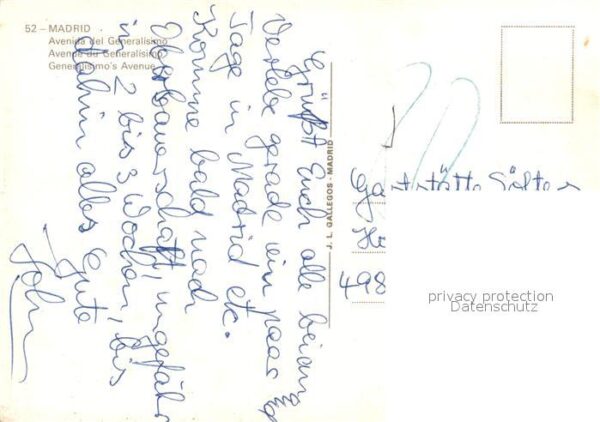 52 – MADRID
Avenida del Generalísimo
Avenue du Generalísimo
Generalísimo's Avenue
Grüßt Euch alle
Verlebe gerade ein paar
Tage in Madrid etc.
Komme bald nach
ungefähr
in 2 bis 3 Wochen, bis
dahin alles Gute
John
J. L. GALLEGOS - MADRID
498
privacy protection
Datenschutz